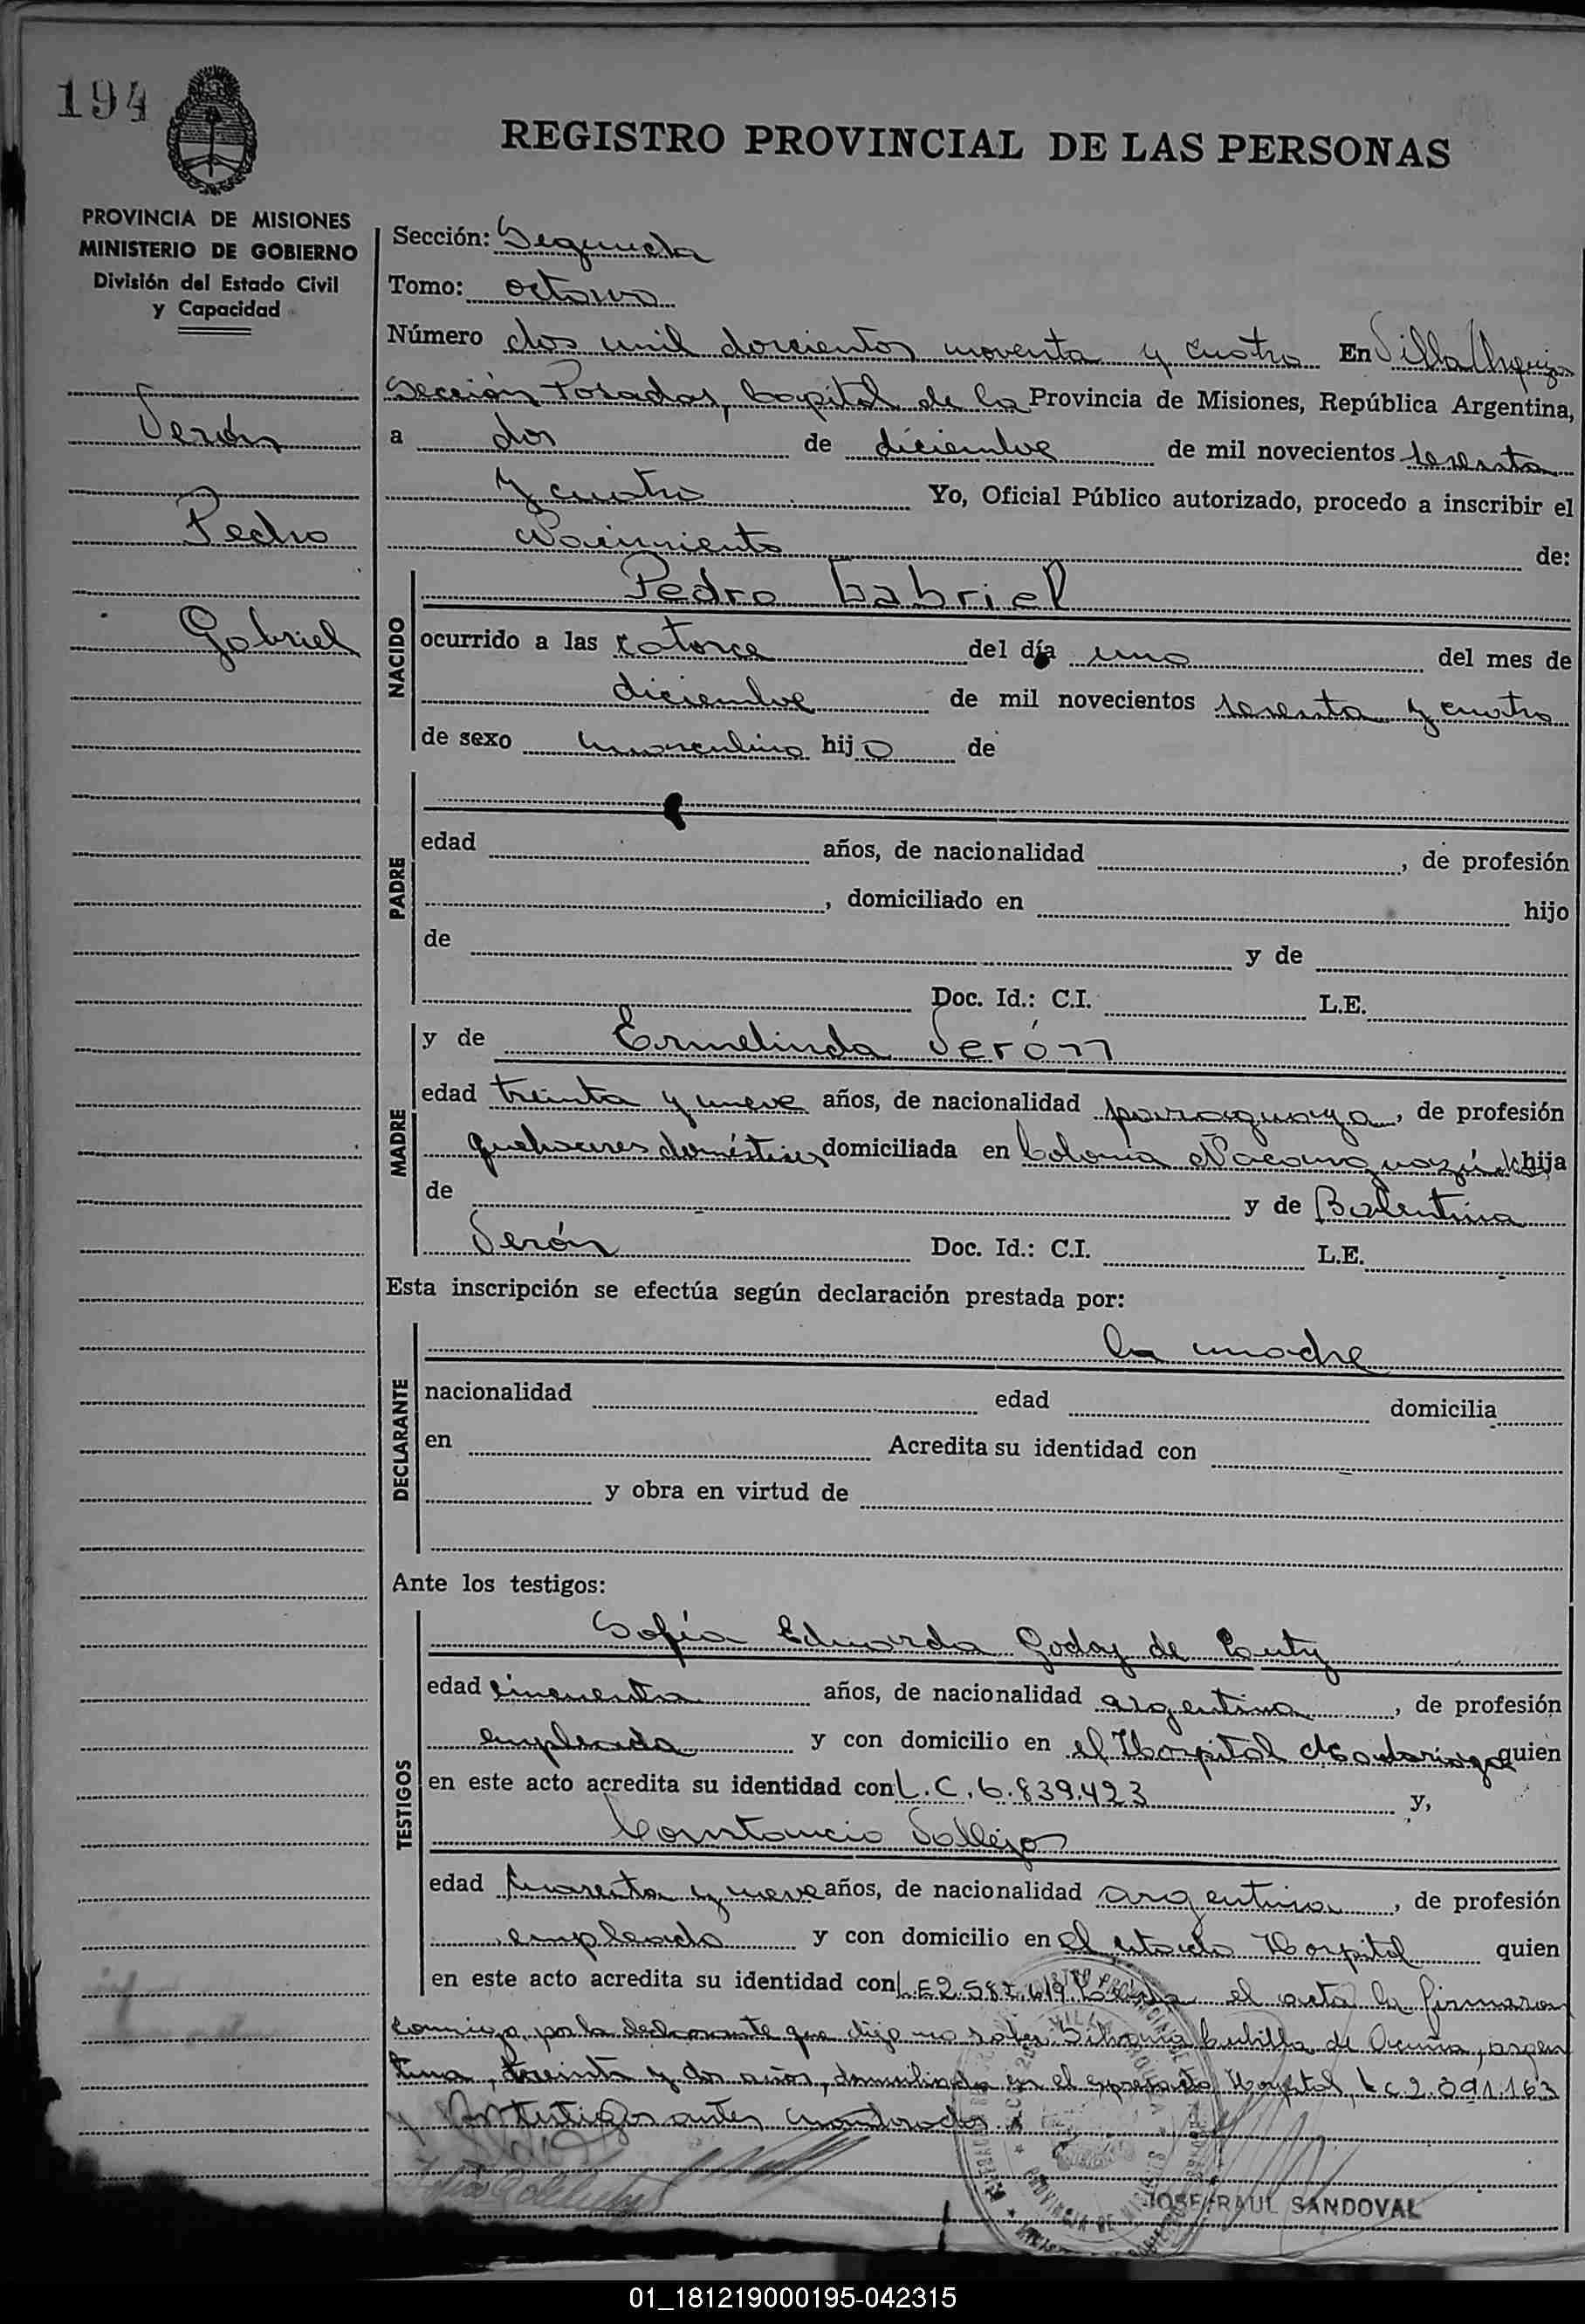 194
REGISTRO PROVINCIAL DE LAS PERSONAS
PROVINCIA DE MISIONES
MINISTERIO DE GOBIERNO
División del Estado Civil
y Capacidad
Verón
Pedro
Gabriel
Sección: Segunda
Tomo: octavo
Número dos mil doscientos noventa y cuatro En Villa Urquiza
Sección Posadas, Capital de la Provincia de Misiones, República Argentina,
a dos de diciembre de mil novecientos sesenta
y cuatro Yo, Oficial Público autorizado, procedo a inscribir el
Nacimiento de:
NACIDO
Pedro Gabriel
ocurrido a las catorce del día uno del mes de
diciembre de mil novecientos sesenta y cuatro
de sexo masculino hijo de
PADRE
edad años, de nacionalidad , de profesión
, domiciliado en hijo
de y de
Doc. Id.: C.I. L.E.
MADRE
y de Ermelinda Verón
edad treinta y nueve años, de nacionalidad paraguaya, de profesión
quehaceres domésticos domiciliada en Colonia Ñacanguazú hija
de y de Balentina
Verón Doc. Id.: C.I. L.E.
Esta inscripción se efectúa según declaración prestada por:
DECLARANTE
la madre
nacionalidad edad domicilia
en Acredita su identidad con
y obra en virtud de
Ante los testigos:
TESTIGOS
Sofía Eduarda Godoy de
edad cincuenta años, de nacionalidad argentina, de profesión
empleada y con domicilio en el Hospital Madariaga quien
en este acto acredita su identidad con L.C. 6.839.423 y,
Constancio Vallejos
edad cuarenta y nueve años, de nacionalidad argentina, de profesión
empleado y con domicilio en el citado Hospital quien
en este acto acredita su identidad con L.E 2.587.619. Leída el acta la firmaron
conmigo, por la declarante que dijo no saber Silvania de Acuña, argen
tina, treinta y dos años, domiciliada en el expresado Hospital, L.C 2.391.163
y los testigos antes nombrados.
JOSE RAUL SANDOVAL
01_181219000195-042315